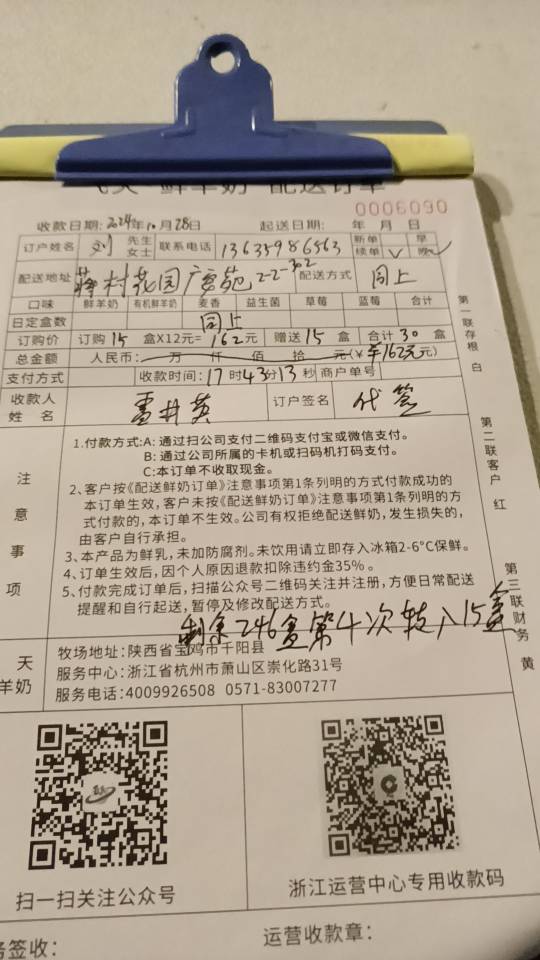 鲜羊奶 配送订单
0006090
收款日期:2024年10月28日 起送日期: 年 月 日
订户姓名 刘 先生 女士 联系电话 13635986563 新单 续单 √ 早 晚 √
配送地址 蒋村花园广賓苑2-2-302 配送方式 同上
口味 鲜羊奶 有机鲜羊奶 麦香 益生菌 草莓 蓝莓 合计
日定盒数 同上
订购价 订购15盒X12元=162元 赠送15盒 合计30盒
总金额 人民币: 万 仟 佰 拾 元(¥ 162元元)
支付方式 收款时间:17时43分13秒 商户单号
收款人姓名 雷井英 订户签名 代签
注意事项
1.付款方式:A: 通过扫公司支付二维码支付宝或微信支付。
B: 通过公司所属的卡机或扫码机打码支付。
C:本订单不收取现金。
2、客户按《配送鲜奶订单》注意事项第1条列明的方式付款成功的
本订单生效，客户未按《配送鲜奶订单》注意事项第1条列明的方
式付款的，本订单不生效。公司有权拒绝配送鲜奶，发生损失的，
由客户自行承担。
3、本产品为鲜乳，未加防腐剂。未饮用请立即存入冰箱2-6°C保鲜。
4、订单生效后，因个人原因退款扣除违约金35%。
5、付款完成订单后，扫描公众号二维码关注并注册，方便日常配送
提醒和自行起送，暂停及修改配送方式。
剩余246盒第4次转入15盒
天
羊奶
牧场地址:陕西省宝鸡市千阳县
服务中心:浙江省杭州市萧山区崇化路31号
服务电话:4009926508 0571-83007277
第一联存根 白
第二联客户 红
第三联财务 黄
扫一扫关注公众号
浙江运营中心专用收款码
务签收:
运营收款章: